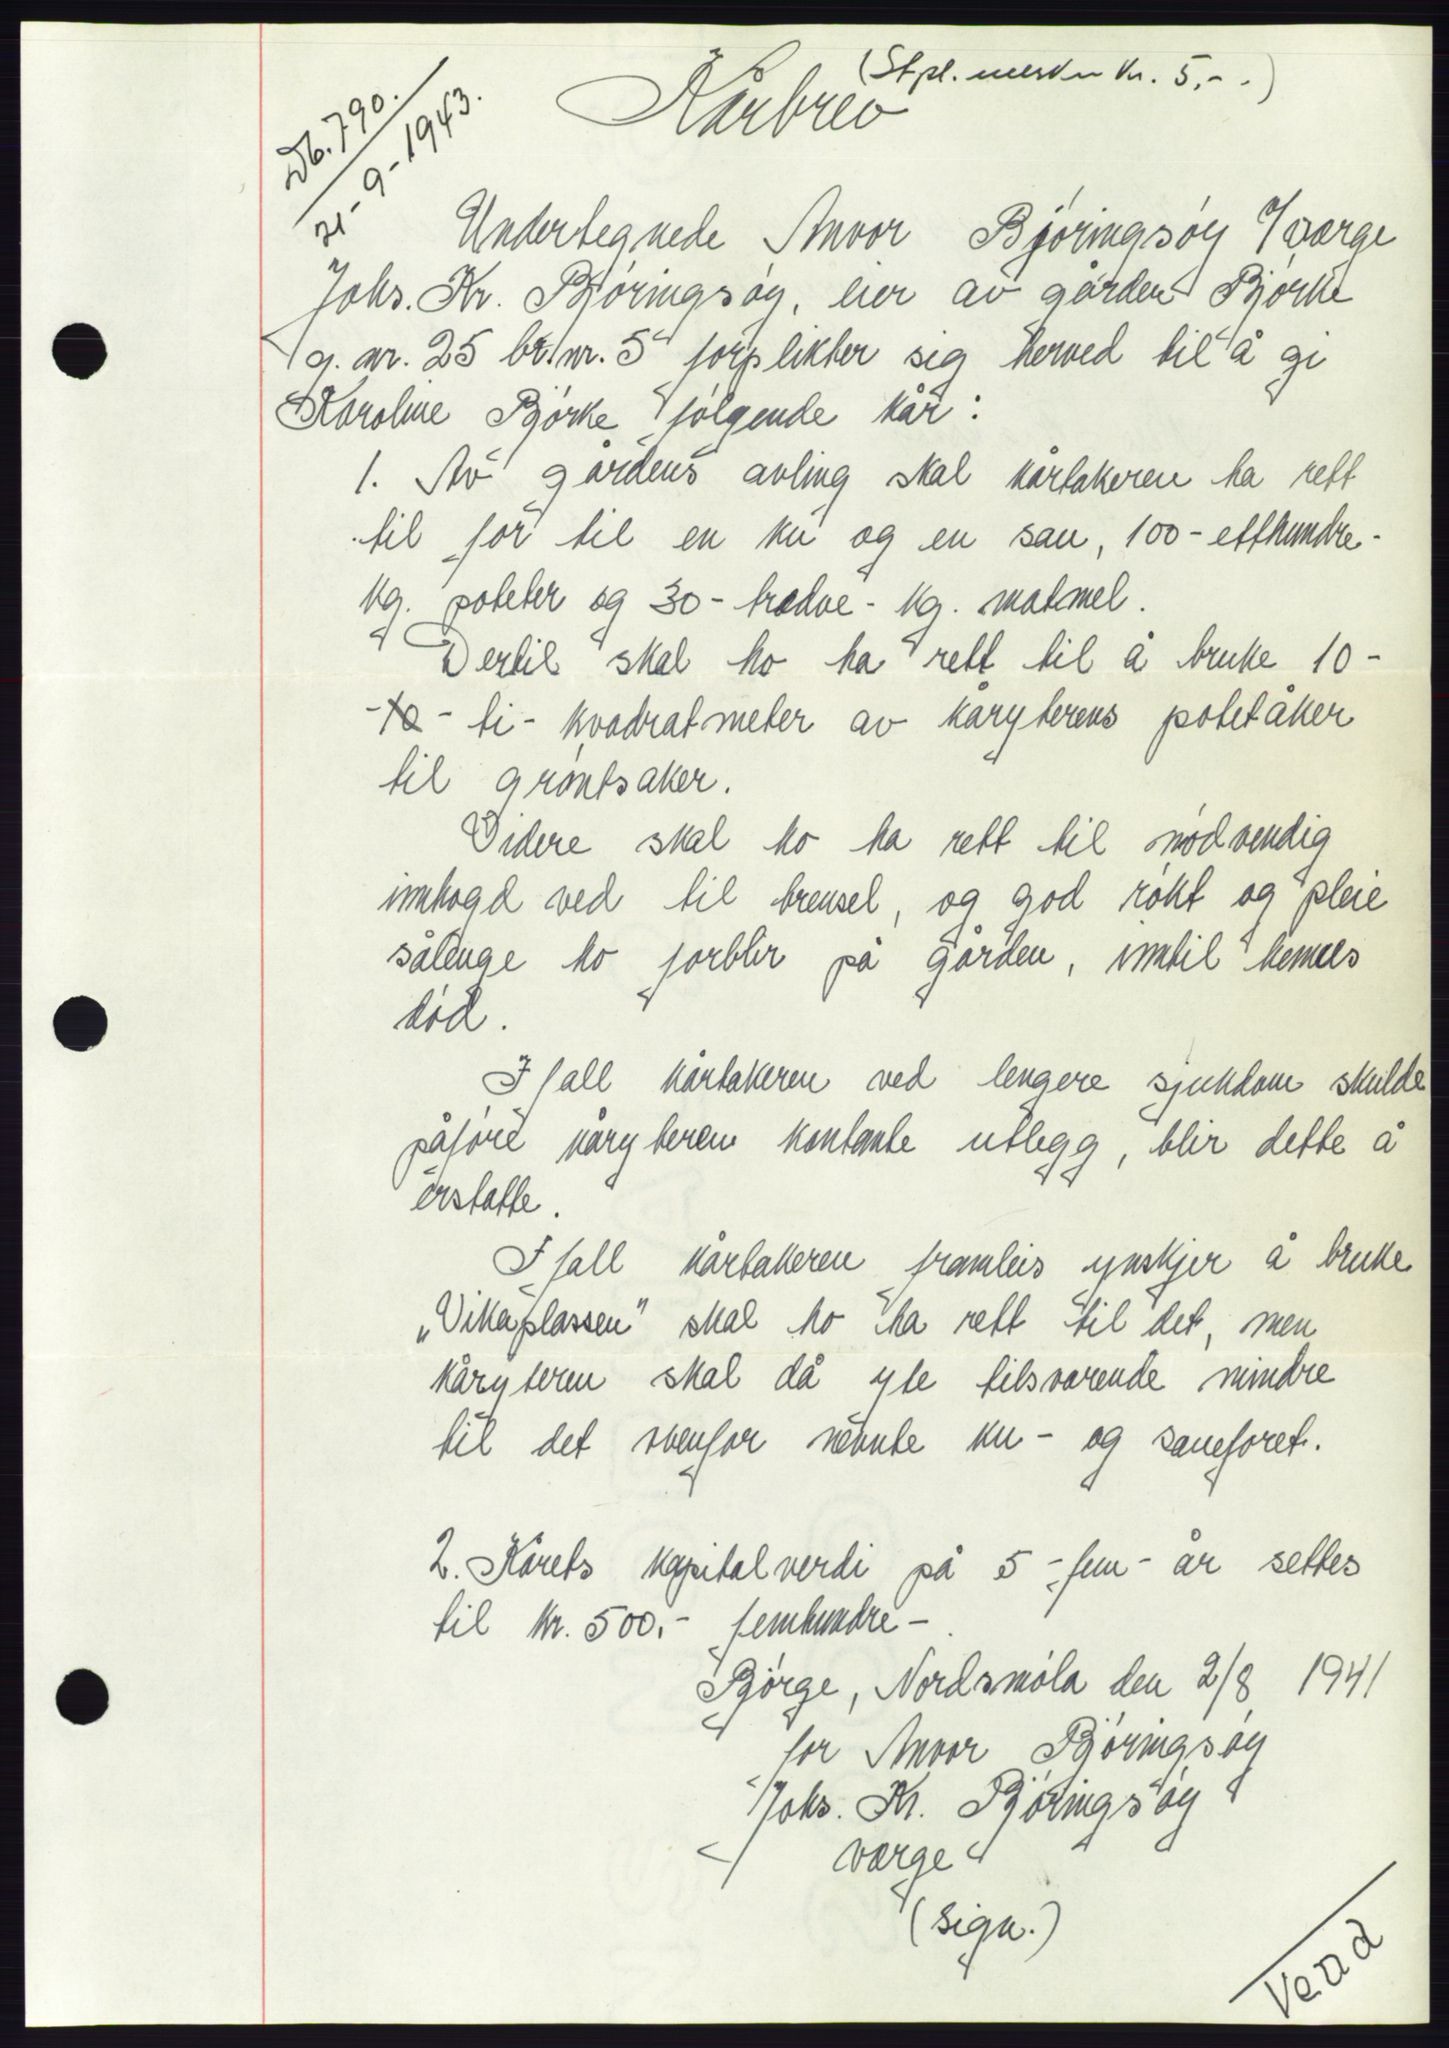 (Stpl. merker kr. 5,- .)
Kårbrev
Db. 790.
21-9-1943.
Undertegnede Anvor Bjøringsøy v/værge
Johs. Kr. Bjøringsøy, eier av gården Bjørke
g. nr. 25 br. nr. 5 forplikter sig herved til å gi
Karoline Bjørke følgende kår:
1. Av gårdens avling skal kårtakeren ha rett
til for til en ku og en sau, 100 - etthundre -
kg. poteter og 30 - tredve - kg. matmel.
Dertil skal ho ha rett til å bruke 10 -
- ti - kvadratmeter av kåryterens potetåker
til grøntsaker.
Videre skal ho ha rett til nødvendig
innhogd ved til brensel, og god røkt og pleie
sålenge ho forblir på gården, inntil hennes
død.
I fall kårtakeren ved lengere sjukdom skulde
påføre kåryteren kontante utlegg, blir dette å
erstatte.
I fall kårtakeren framleis ynskjer å bruke
„Vikaplassen" skal ho ha rett til det, men
kåryteren skal då yte tilsvarende mindre
til det ovenfor nevnte ku- og saueforet.
2. Kårets kapitalverdi på 5 - fem - år settes
til kr. 500,- femhundre - .
Bjørge, Nordsmøla den 2/8 1941
for Anvor Bjøringsøy
Johs. Kr. Bjøringsøy
værge
(sign.)
Vend